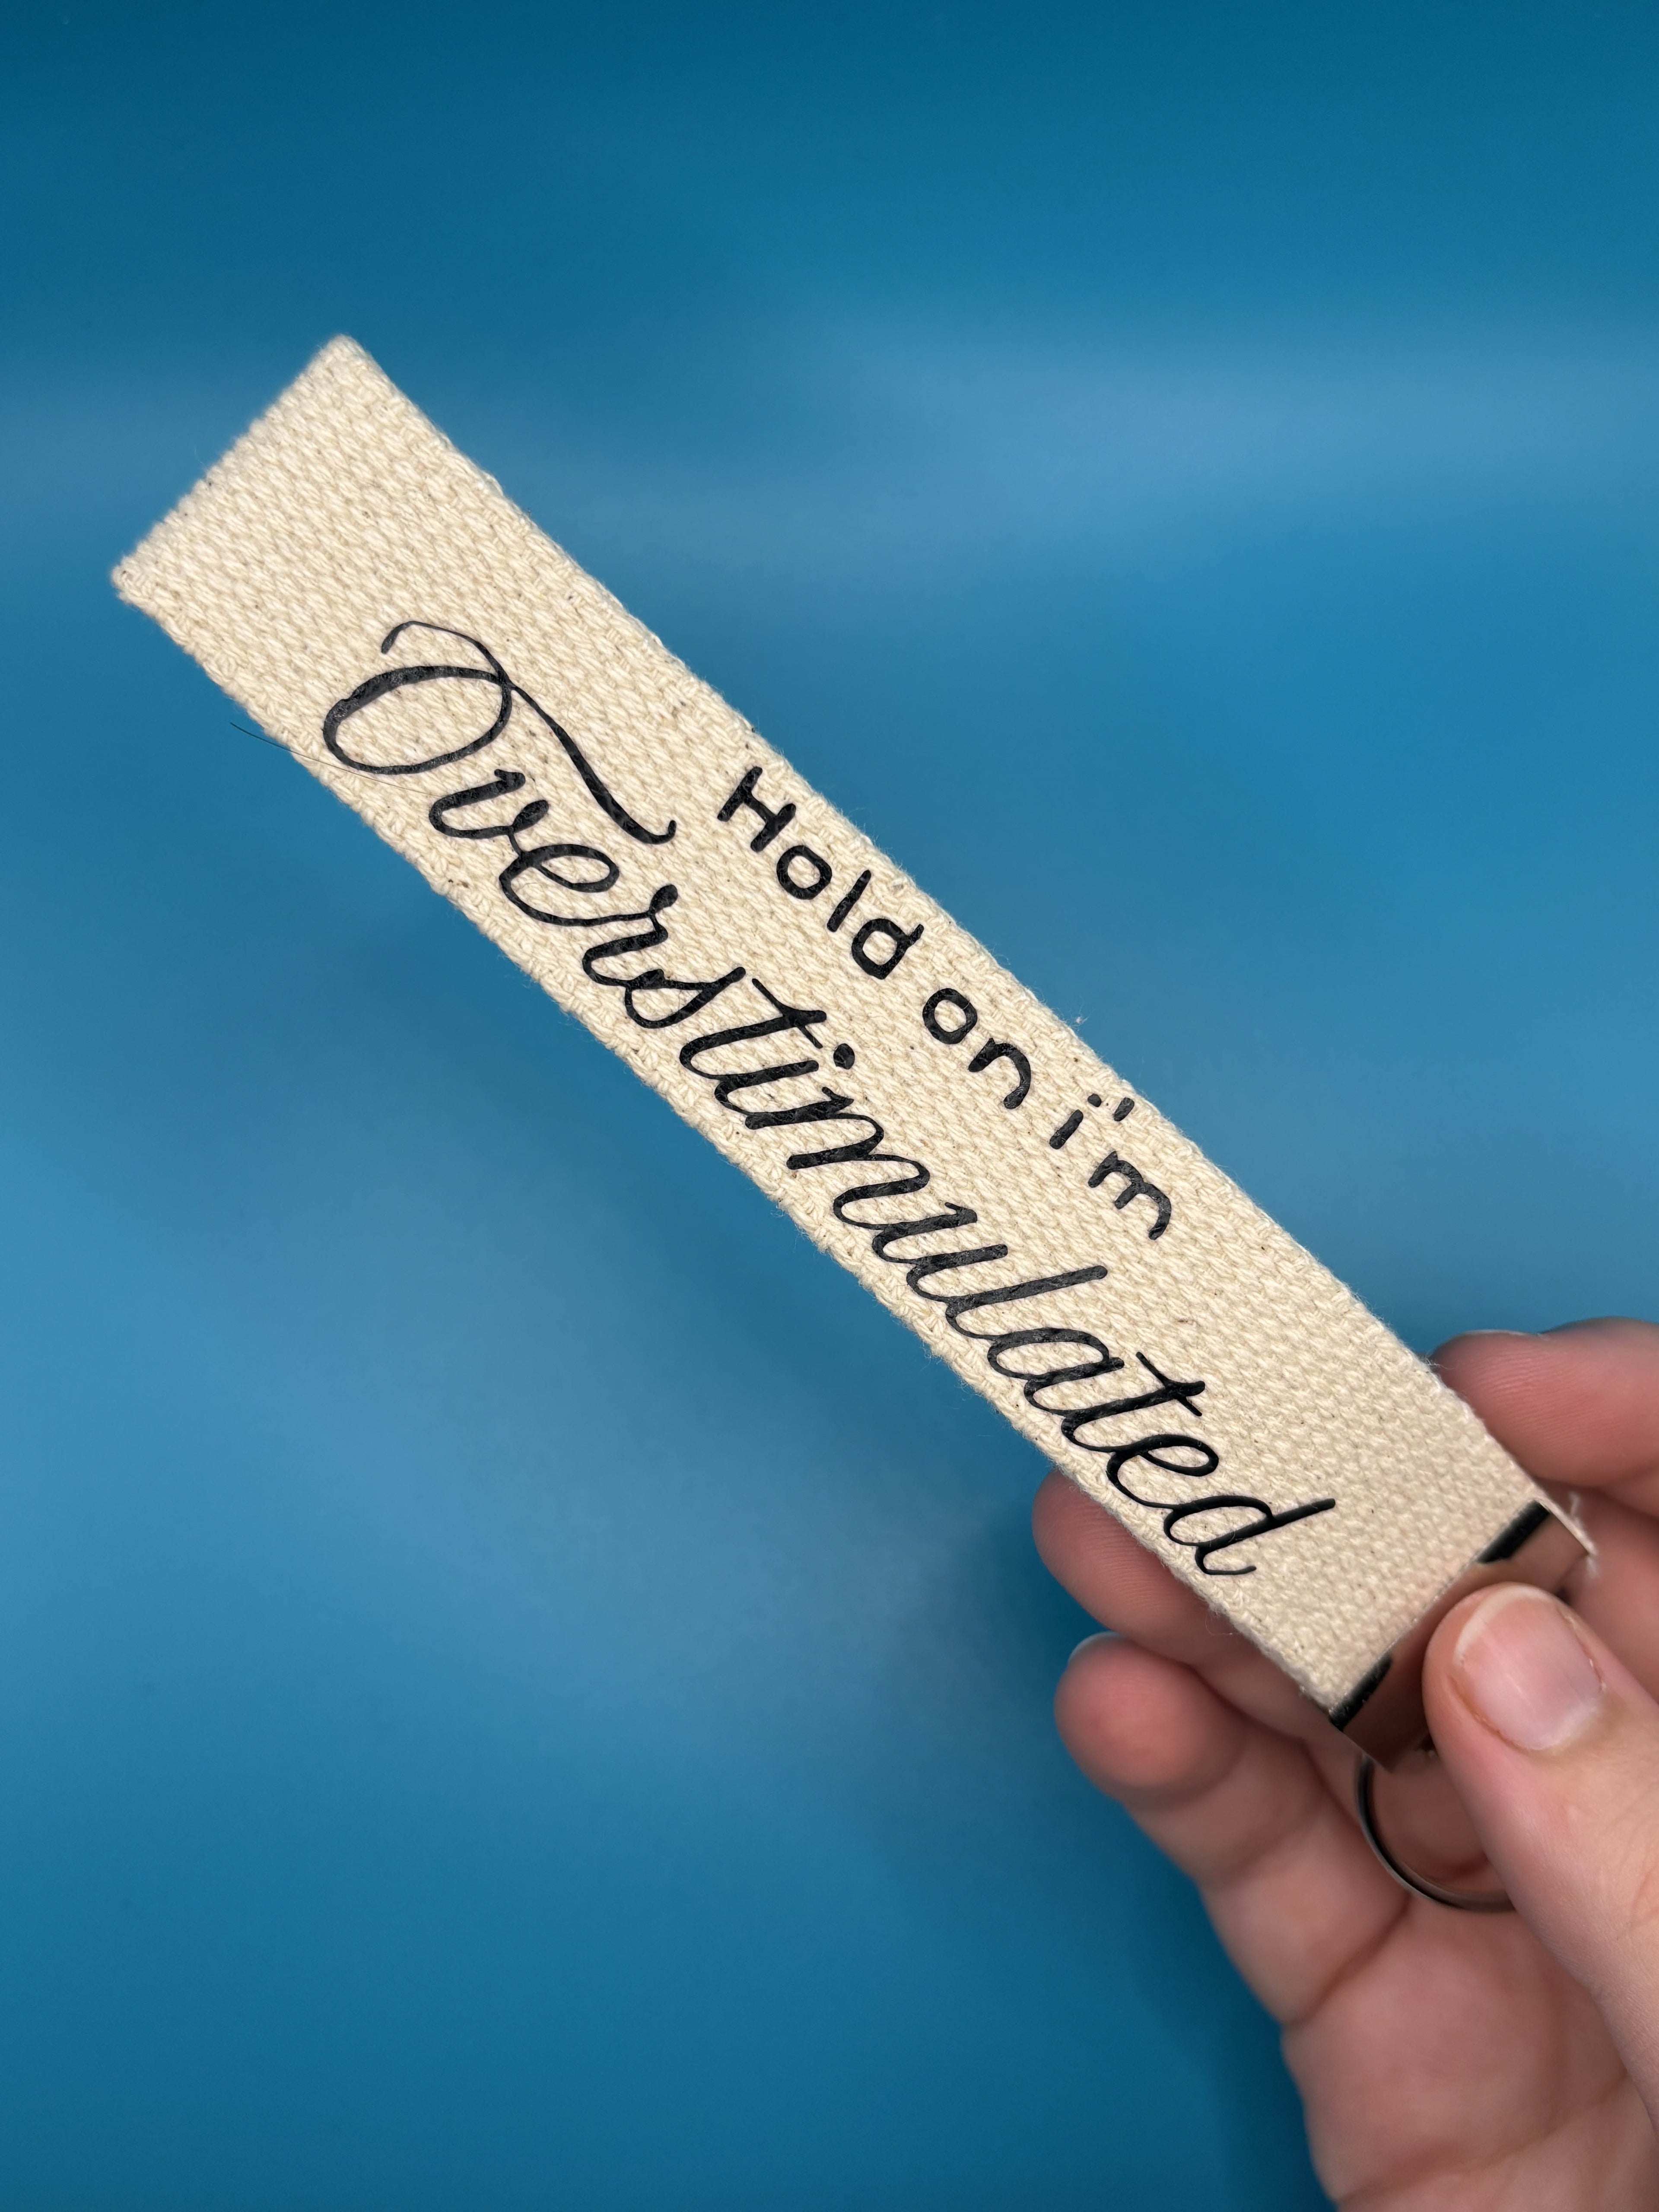 Hold on i'm
Overstimulated